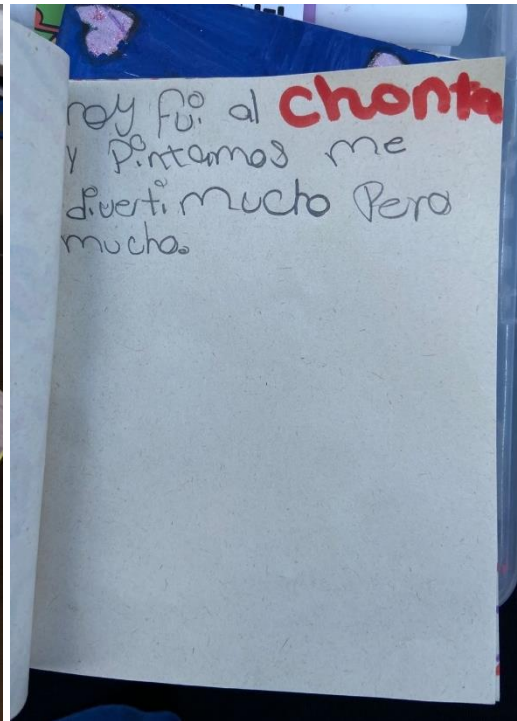 hoy fui al chonta
y Pintamos me
diverti mucho Pero
mucho.